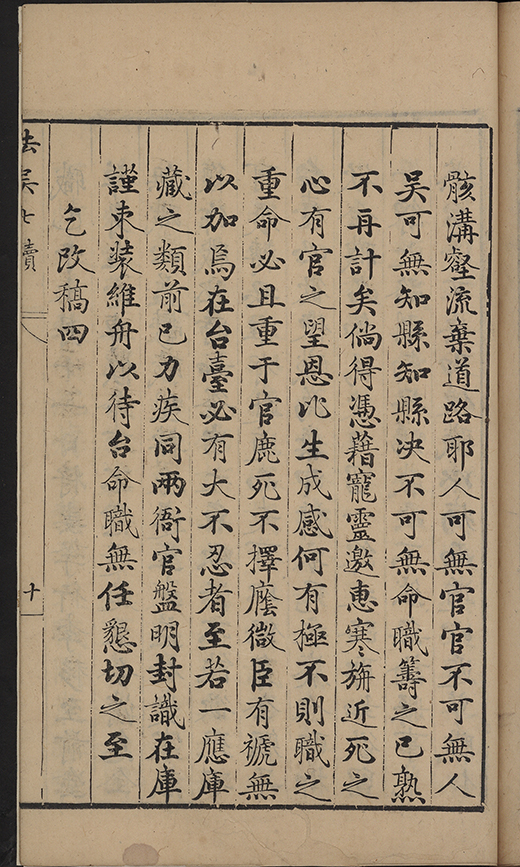 骸溝壑流棄道路耶人可無官官不可無人
吳可無知縣知縣决不可無命職籌之已熟
不再計矣倘得憑藉寵靈邀惠寒旃近死之
心有官之望恩比生成感何有極不則職之
重命必且重于官鹿死不擇廕微臣有褫無
以加焉在台臺必有大不忍者至若一應庫
藏之類前已力疾同兩衙官盤明封識在庫
謹束装維舟以待台命職無任懇切之至
乞改稿四
去吳七牘
十